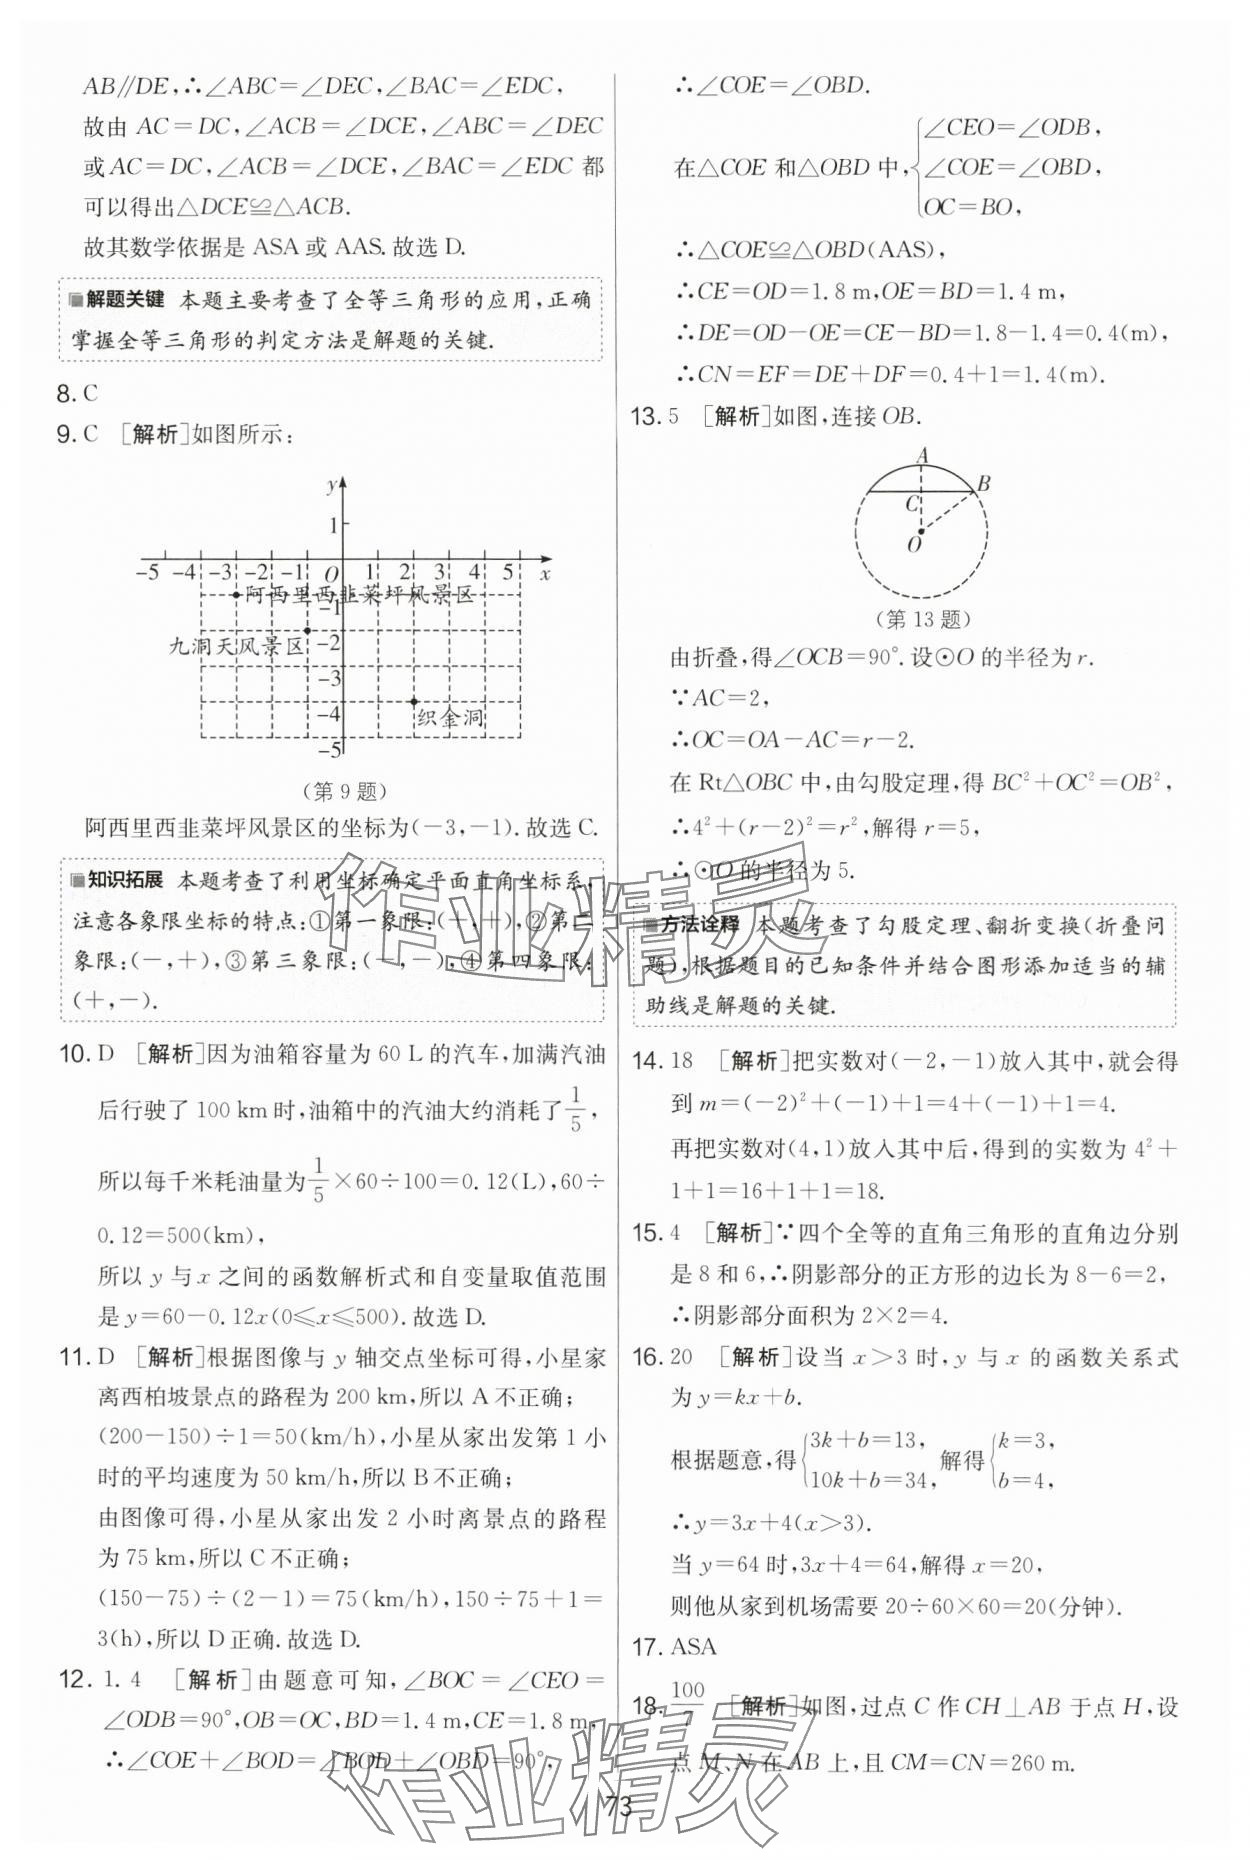 AB∥DE,∴∠ABC=∠DEC,∠BAC=∠EDC,
故由 AC=DC,∠ACB=∠DCE,∠ABC=∠DEC
或AC=DC,∠ACB=∠DCE,∠BAC=∠EDC 都
可以得出△DCE≌△ACB.
故其数学依据是 ASA 或 AAS.故选 D.
解题关键 本题主要考查了全等三角形的应用,正确
掌握全等三角形的判定方法是解题的关键.
8. C
9. C [解析]如图所示:
y
1
-5 -4 -3 -2 -1 O 1 2 3 4 5 x
阿西里西韭菜坪风景区
-1
九洞天风景区 -2
-3
-4 织金洞
-5
(第 9 题)
阿西里西韭菜坪风景区的坐标为(-3,-1).故选 C.
知识拓展 本题考查了利用坐标确定平面直角坐标系,
注意各象限坐标的特点:①第一象限:(+,+),②第二
象限:(-,+),③第三象限:(-,-),④第四象限:
(+,-).
10. D [解析]因为油箱容量为 60 L 的汽车,加满汽油
后行驶了 100 km 时,油箱中的汽油大约消耗了1/5,
所以每千米耗油量为1/5×60÷100=0.12(L),60÷
0.12=500(km),
所以 y 与 x 之间的函数解析式和自变量取值范围
是 y=60-0.12x(0≤x≤500).故选 D.
11. D [解析]根据图像与 y 轴交点坐标可得,小星家
离西柏坡景点的路程为 200 km,所以 A 不正确;
(200-150)÷1=50(km/h),小星从家出发第 1 小
时的平均速度为 50 km/h,所以 B 不正确;
由图像可得,小星从家出发 2 小时离景点的路程
为 75 km,所以 C 不正确;
(150-75)÷(2-1)=75(km/h),150÷75+1=
3(h),所以 D 正确.故选 D.
12. 1.4 [解析]由题意可知,∠BOC=∠CEO=
∠ODB=90°,OB=OC,BD=1.4 m,CE=1.8 m,
∴∠COE+∠BOD=∠BOD+∠OBD=90°,
∴∠COE=∠OBD.
在△COE 和△OBD 中,{∠CEO=∠ODB,
∠COE=∠OBD,
OC=BO,
∴△COE≌△OBD(AAS),
∴CE=OD=1.8 m,OE=BD=1.4 m,
∴DE=OD-OE=CE-BD=1.8-1.4=0.4(m),
∴CN=EF=DE+DF=0.4+1=1.4(m).
13. 5 [解析]如图,连接 OB.
A
B
C
O
(第 13 题)
由折叠,得∠OCB=90°.设⊙O 的半径为 r.
∵AC=2,
∴OC=OA-AC=r-2.
在 Rt△OBC 中,由勾股定理,得 BC²+OC²=OB²,
∴4²+(r-2)²=r²,解得 r=5,
∴⊙O 的半径为 5.
方法诠释 本题考查了勾股定理、翻折变换(折叠问
题),根据题目的已知条件并结合图形添加适当的辅
助线是解题的关键.
14. 18 [解析]把实数对(-2,-1)放入其中,就会得
到 m=(-2)²+(-1)+1=4+(-1)+1=4.
再把实数对(4,1)放入其中后,得到的实数为 4²+
1+1=16+1+1=18.
15. 4 [解析]∵四个全等的直角三角形的直角边分别
是 8 和 6,∴阴影部分的正方形的边长为 8-6=2,
∴阴影部分面积为 2×2=4.
16. 20 [解析]设当 x>3 时,y 与 x 的函数关系式
为 y=kx+b.
根据题意,得{3k+b=13, 10k+b=34, 解得{k=3, b=4,
∴y=3x+4(x>3).
当 y=64 时,3x+4=64,解得 x=20,
则他从家到机场需要 20÷60×60=20(分钟).
17. ASA
18. 100 [解析]如图,过点 C 作 CH⊥AB 于点 H,设
点 M、N 在 AB 上,且 CM=CN=260 m.
73
作业精灵
作业精灵